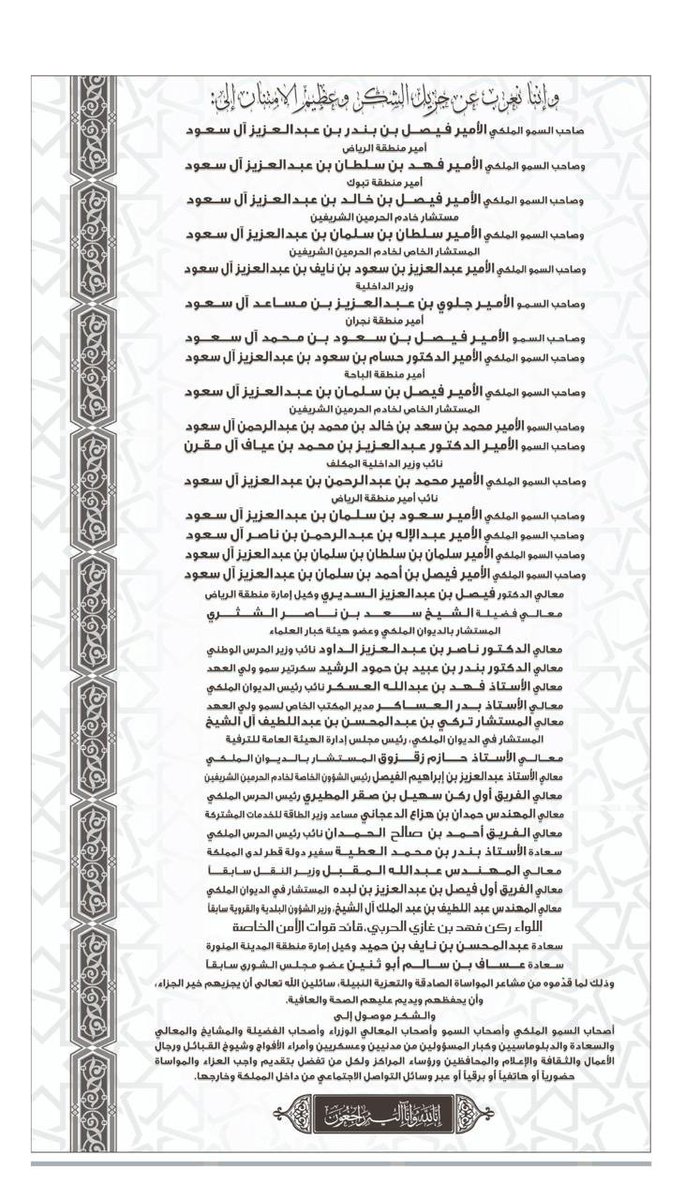 وإننا نعرب عن جزيل الشكر وعظيم الامتنان إلى:
صاحب السمو الملكي الأمير فيصل بن بندر بن عبدالعزيز آل سعود
أمير منطقة الرياض
وصاحب السمو الملكي الأمير فهد بن سلطان بن عبدالعزيز آل سعود
أمير منطقة تبوك
وصاحب السمو الملكي الأمير فيصل بن خالد بن عبدالعزيز آل سعود
مستشار خادم الحرمين الشريفين
وصاحب السمو الملكي الأمير سلطان بن سلمان بن عبدالعزيز آل سعود
المستشار الخاص لخادم الحرمين الشريفين
وصاحب السمو الملكي الأمير عبدالعزيز بن سعود بن نايف بن عبدالعزيز آل سعود
وزير الداخلية
وصاحب السمو الأمير جلوي بن عبدالعزيز بن مساعد آل سعود
أمير منطقة نجران
وصاحب السمو الأمير فيصل بن سعود بن محمد آل سعود
وصاحب السمو الملكي الأمير الدكتور حسام بن سعود بن عبدالعزيز آل سعود
أمير منطقة الباحة
وصاحب السمو الملكي الأمير فيصل بن سلمان بن عبدالعزيز آل سعود
المستشار الخاص لخادم الحرمين الشريفين
وصاحب السمو الأمير محمد بن سعد بن خالد بن محمد بن عبدالرحمن آل سعود
وصاحب السمو الأمير الدكتور عبدالعزيز بن محمد بن عياف آل مقرن
نائب وزير الداخلية المكلف
وصاحب السمو الملكي الأمير محمد بن عبدالرحمن بن عبدالعزيز آل سعود
نائب أمير منطقة الرياض
وصاحب السمو الملكي الأمير سعود بن سلمان بن عبدالعزيز آل سعود
وصاحب السمو الملكي الأمير عبدالإله بن عبدالرحمن بن ناصر آل سعود
وصاحب السمو الملكي الأمير سلمان بن سلطان بن سلمان بن عبدالعزيز آل سعود
وصاحب السمو الملكي الأمير فيصل بن أحمد بن سلمان بن عبدالعزيز آل سعود
معالي الدكتور فيصل بن عبدالعزيز السديري وكيل إمارة منطقة الرياض
معالي فضيلة الشيخ سعد بن ناصر الشثري
المستشار بالديوان الملكي وعضو هيئة كبار العلماء
معالي الدكتور ناصر بن عبدالعزيز الداود نائب وزير الحرس الوطني
معالي الدكتور بندر بن عبيد بن حمود الرشيد سكرتير سمو ولي العهد
معالي الأستاذ فهد بن عبدالله العسكر نائب رئيس الديوان الملكي
معالي الأستاذ بدر العساكر مدير المكتب الخاص لسمو ولي العهد
معالي المستشار تركي بن عبدالمحسن بن عبداللطيف آل الشيخ
المستشار في الديوان الملكي، رئيس مجلس إدارة الهيئة العامة للترفية
معالي الأستاذ حازم زقزوق المستشار بالديوان الملكي
معالي الأستاذ عبدالعزيز بن إبراهيم الفيصل رئيس الشؤون الخاصة لخادم الحرمين الشريفين
معالي الفريق أول ركن سهيل بن صقر المطيري رئيس الحرس الملكي
معالي المهندس حمدان بن هزاع الدعجاني مساعد وزير الطاقة للخدمات المشتركة
معالي الفريق أحمد بن صالح الحمدان نائب رئيس الحرس الملكي
سعادة الأستاذ بندر بن محمد العطية سفير دولة قطر لدى المملكة
معالي المهندس عبدالله المقبل وزير النقل سابقاً
معالي الفريق أول فيصل بن عبدالعزيز بن لبده المستشار في الديوان الملكي
معالي المهندس عبد اللطيف بن عبد الملك آل الشيخ، وزير الشؤون البلدية والقروية سابقاً
اللواء ركن فهد بن غازي الحربي، قائد قوات الأمن الخاصة
سعادة عبدالمحسن بن نايف بن حميد وكيل إمارة منطقة المدينة المنورة
سعادة عساف بن سالم أبو ثنين عضو مجلس الشورى سابقاً
وذلك لما قدّموه من مشاعر المواساة الصادقة والتعزية النبيلة، سائلين الله تعالى أن يجزيهم خير الجزاء،
وأن يحفظهم ويديم عليهم الصحة والعافية.
والشكر موصول إلى
أصحاب السمو الملكي وأصحاب السمو وأصحاب المعالي الوزراء وأصحاب الفضيلة والمشايخ والمعالي
والسعادة والدبلوماسيين وكبار المسؤولين من مدنيين وعسكريين وأمراء الأفواج وشيوخ القبائل ورجال
الأعمال والثقافة والإعلام والمحافظين ورؤساء المراكز ولكل من تفضل بتقديم واجب العزاء والمواساة
حضورياً أو هاتفياً أو برقياً أو عبر وسائل التواصل الاجتماعي من داخل المملكة وخارجها.
إنا لله وإنا إليه راجعون